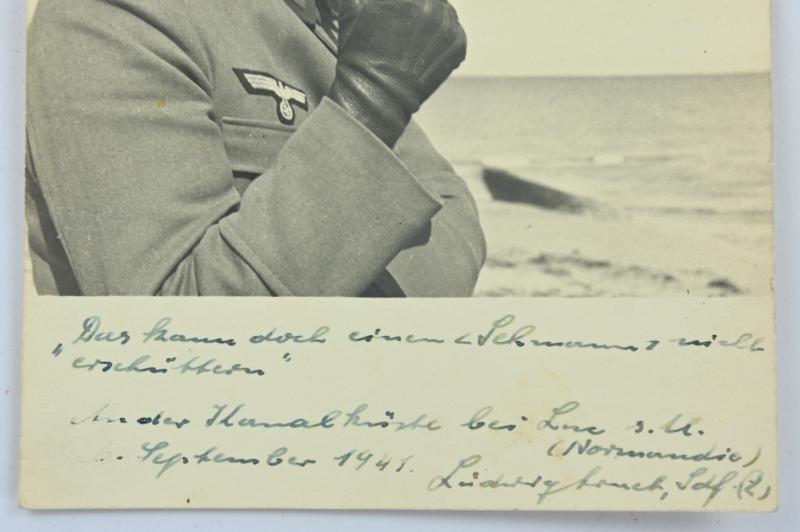 „Das kann doch einen <Sehmann> nicht
erschüttern"
An der Kanalküste bei Luc s. M.
(Normandie)
September 1941.
Ludwig Sdf (Z)